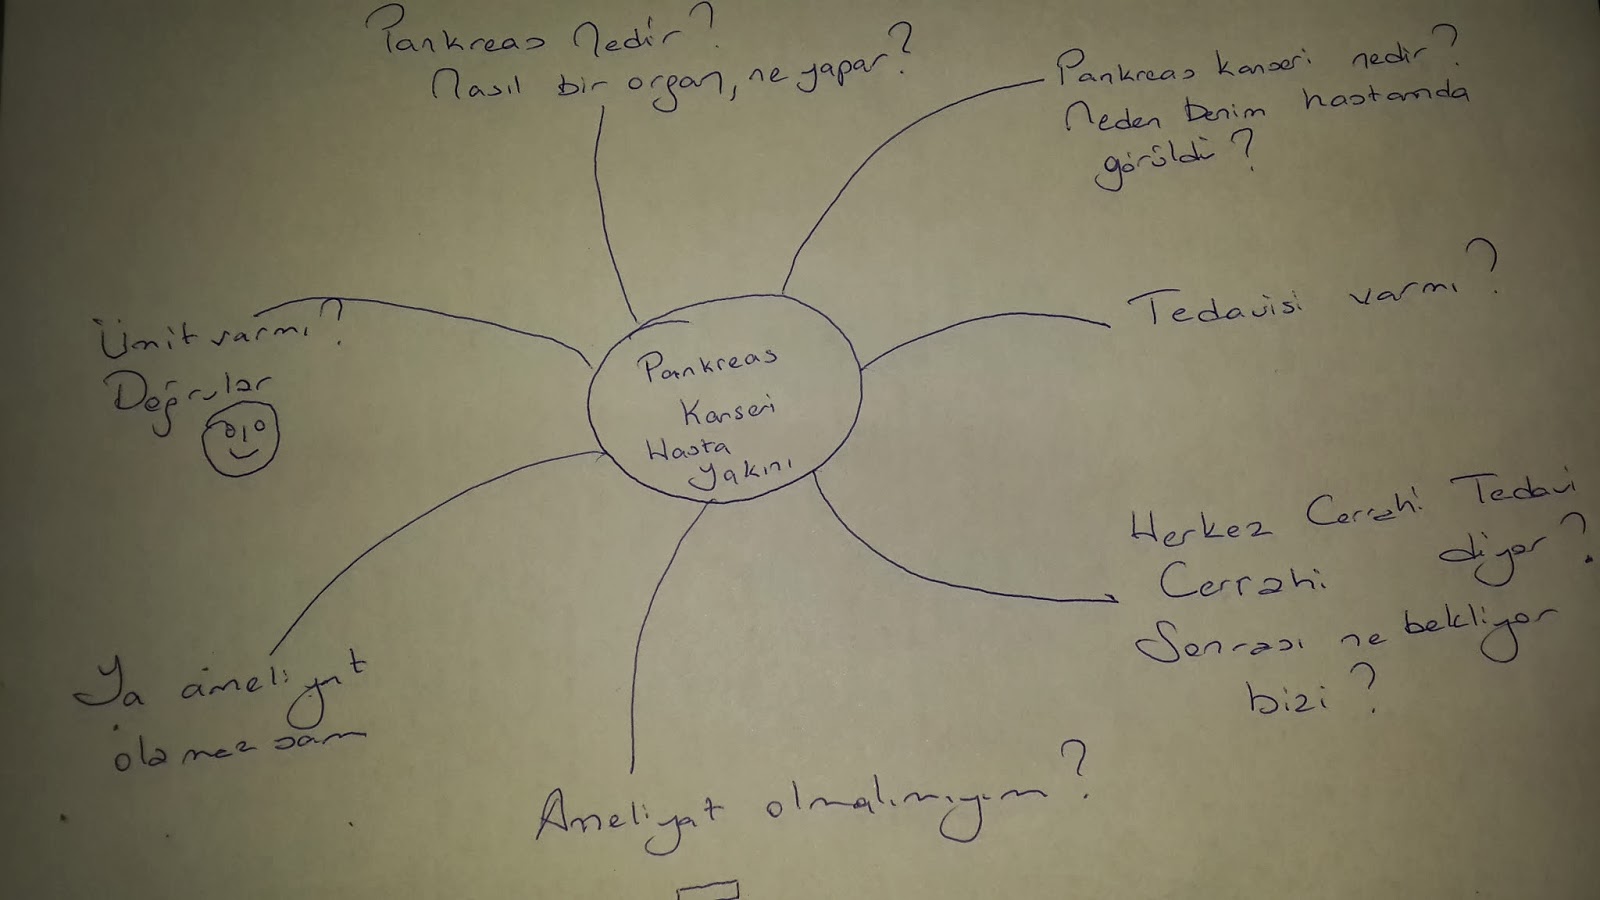 Pankreas Nedir?
Nasıl bir organ, ne yapar?
Pankreas kanseri nedir?
Neden benim hastamda
görüldü?
Tedavisi varmı?
Herkez Cerrahi Tedavi
diyor?
Cerrahi
Sonrası ne bekliyor
bizi?
Ameliyat olmalımıyım?
Ya ameliyat
olamazsam
Ümit varmı?
Doğrular
Pankreas
Kanseri
Hasta
Yakını